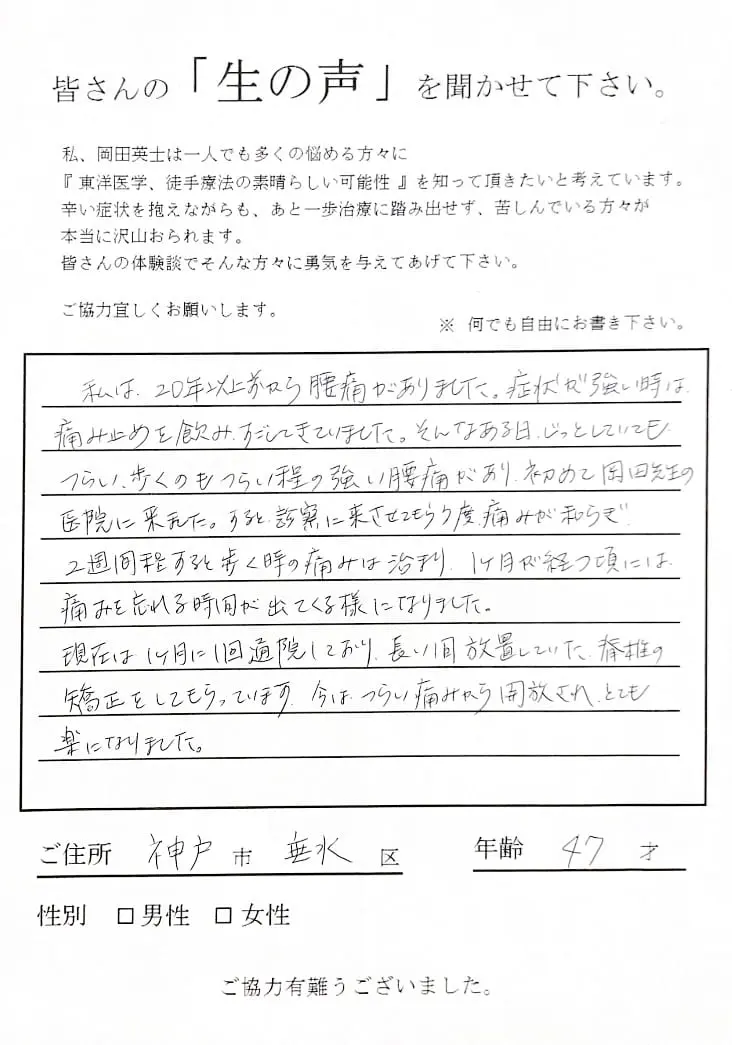 皆さんの「生の声」を聞かせて下さい。
私、岡田英士は一人でも多くの悩める方々に
『 東洋医学、徒手療法の素晴らしい可能性 』を知って頂きたいと考えています。
辛い症状を抱えながらも、あと一歩治療に踏み出せず、苦しんでいる方々が
本当に沢山おられます。
皆さんの体験談でそんな方々に勇気を与えてあげて下さい。
ご協力宜しくお願いします。
※ 何でも自由にお書き下さい。
私は、20年以上前から腰痛がありました。症状が強い時は、
痛み止めを飲み、すごしてきていました。そんなある日、じっとしていても
つらい、歩くのもつらい程の強い腰痛があり、初めて岡田先生の
医院に来ました。すると、診察に来させてもらう度、痛みが和らぎ
2週間程すると歩く時の痛みは治まり、1ヶ月が経つ頃には、
痛みを忘れる時間が出てくる様になりました。
現在は1ヶ月に1回通院しており、長い間放置していた、脊椎の
矯正をしてもらっています。今は、つらい痛みから開放され、とても
楽になりました。
ご住所 神戸 市 垂水 区 年齢 47 才
性別 □ 男性 □ 女性
ご協力有難うございました。